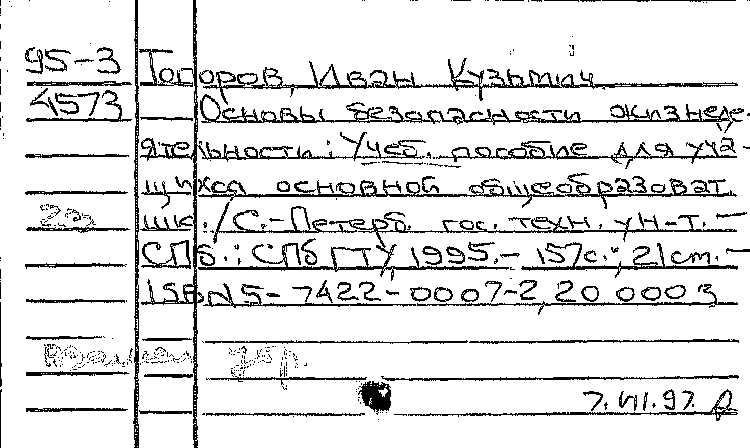 95-3 Топоров, Иван Кузьмич.
4573 Основы безопасности жизнеде-
ятельности: Учеб. пособие для уча-
щихся основной общеобразоват.
шк./С.-Петерб. гос. техн. ун-т. -
СПб.: СПбГТУ, 1995.- 157с.; 21 см. -
ISBN 5-7422-0007-2, 20 000 э
7.VII.97.